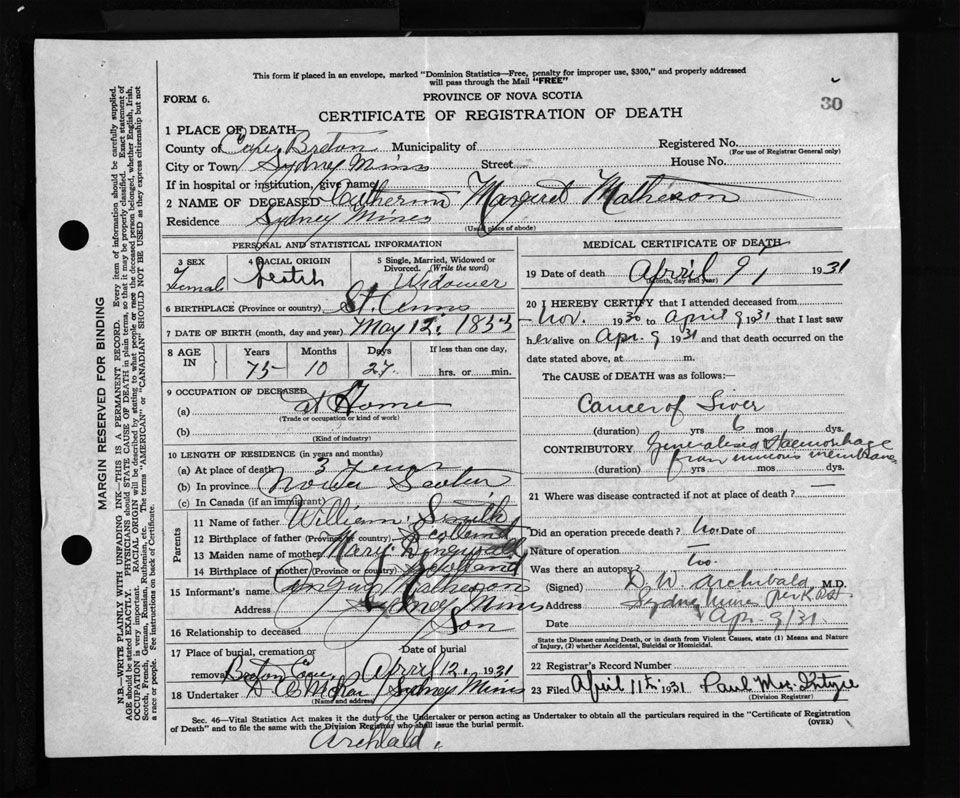 This form if placed in an envelope, marked "Dominion Statistics—Free, penalty for improper use, $300," and properly addressed
will pass through the Mail "FREE"
FORM 6.
PROVINCE OF NOVA SCOTIA
30
CERTIFICATE OF REGISTRATION OF DEATH
MARGIN RESERVED FOR BINDING
N.B.—WRITE PLAINLY WITH UNFADING INK—THIS IS A PERMANENT RECORD. Every item of information should be carefully supplied.
AGE should be stated EXACTLY. PHYSICIANS should STATE CAUSE OF DEATH in plain terms, so that it may be properly classified. Exact statement of
OCCUPATION is very important. RACIAL ORIGIN will be described by stating to what people or race the deceased person belonged, whether English, Irish,
Scotch, French, German, Russian, Ruthenian, etc. The terms "AMERICAN" or "CANADIAN" SHOULD NOT BE USED as they express citizenship but not
a race or people. See instructions on back of Certificate.
1 PLACE OF DEATH
County of Cape Breton Municipality of Registered No.
(For use of Registrar General only)
City or Town Sydney Mines Street House No.
If in hospital or institution, give name
2 NAME OF DECEASED Catherine Margaret Matheson
Residence Sydney Mines
(Usual place of abode)
PERSONAL AND STATISTICAL INFORMATION
3 SEX
Femal
4 RACIAL ORIGIN
5 Single, Married, Widowed or
Divorced. (Write the word)
Widower
6 BIRTHPLACE (Province or country) St. Anns
7 DATE OF BIRTH (month, day and year) May 12, 1855
8 AGE IN
Years
75
Months
10
Days
27
If less than one day,
hrs. or min.
9 OCCUPATION OF DECEASED
(a) at Home
(Trade or occupation or kind of work)
(b)
(Kind of industry)
10 LENGTH OF RESIDENCE (in years and months)
(a) At place of death 3 years
(b) In province Nova Scotia
(c) In Canada (if an immigrant)
Parents
11 Name of father William Smith
12 Birthplace of father (Province or country) Scotland
13 Maiden name of mother Mary
14 Birthplace of mother (Province or country) Scotland
15 Informant's name Angus Matheson
Address Sydney Mines
16 Relationship to deceased Son
17 Place of burial, cremation or
removal Breton Cove
Date of burial
April 12, 1931
18 Undertaker Sydney Mines
(Name and address)
MEDICAL CERTIFICATE OF DEATH
19 Date of death April 9, 1931
(Month, day and year)
20 I HEREBY CERTIFY that I attended deceased from
Nov. 1930 to April 9 1931 that I last saw
her alive on Apr. 9 1931 and that death occurred on the
date stated above, at m.
The CAUSE of DEATH was as follows:—
Cancer of Liver
(duration) yrs 6 mos dys.
CONTRIBUTORY Generalised Haemorrhage
from mucous membranes
(duration) yrs. mos. dys.
21 Where was disease contracted if not at place of death? —
Did an operation precede death? No. Date of
Nature of operation —
Was there an autopsy? No.
(Signed) D. W. Archibald M.D.
Address Sydney Mines
Date Apr. 9/31.
State the Disease causing Death, or in death from Violent Causes, state (1) Means and Nature
of Injury, (2) whether Accidental, Suicidal or Homicidal.
22 Registrar's Record Number
23 Filed April 11th 1931
Division Registrar
Sec. 46—Vital Statistics Act makes it the duty of the Undertaker or person acting as Undertaker to obtain all the particulars required in the "Certificate of Registration
of Death" and to file the same with the Division Registrar who shall issue the burial permit.
(OVER)